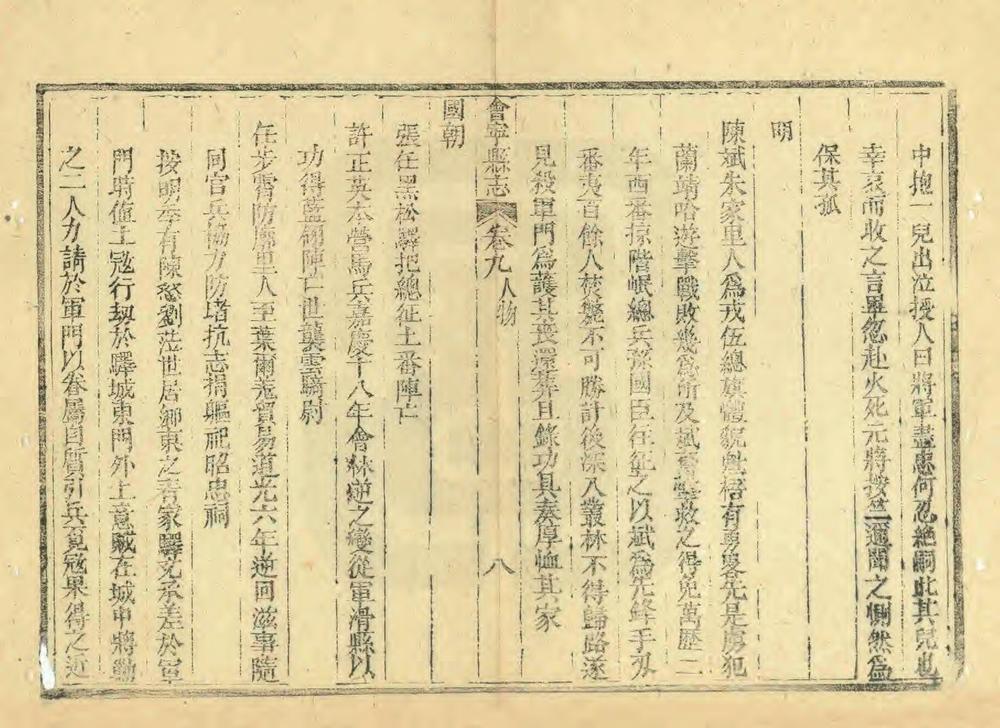 中抱一兒出泣授人曰將軍盡忠何忍絶嗣此其兒也
幸哀而收之言畢忽赴火死元將按竺邇聞之惻然爲
保其孤
明
陳斌朱家里人爲戎伍總旗體貌魁梧有勇畧先是虜犯
蘭靖哈遊擊戰敗幾爲所及斌奮擊救之得免萬歷二
年西番掠階岷總兵孫國臣征之以斌爲先鋒手刃
番夷百餘人焚斃不可勝計後深入叢林不得歸路遂
見殺軍門爲護其喪還葬且錄功具奏厚恤其家
會寧縣志
卷九人物
八
國朝
張任黑松驛把總征土番陣亡
許正英本營馬兵嘉慶十八年會林逆之變從軍滑縣以
功得藍翎陣亡世襲雲騎尉
任步霄防廓里人至葉爾羌貿易道光六年逆回滋事隨
同官兵協力防堵抗志捐軀祀昭忠祠
按明季有陳愁劉茫世居鄉東之者家驛充承差於軍
門時値土寇行刼於驛城東門外上意賊在城中將勦
之二人力請於軍門以眷屬自質引兵覓寇果得之近